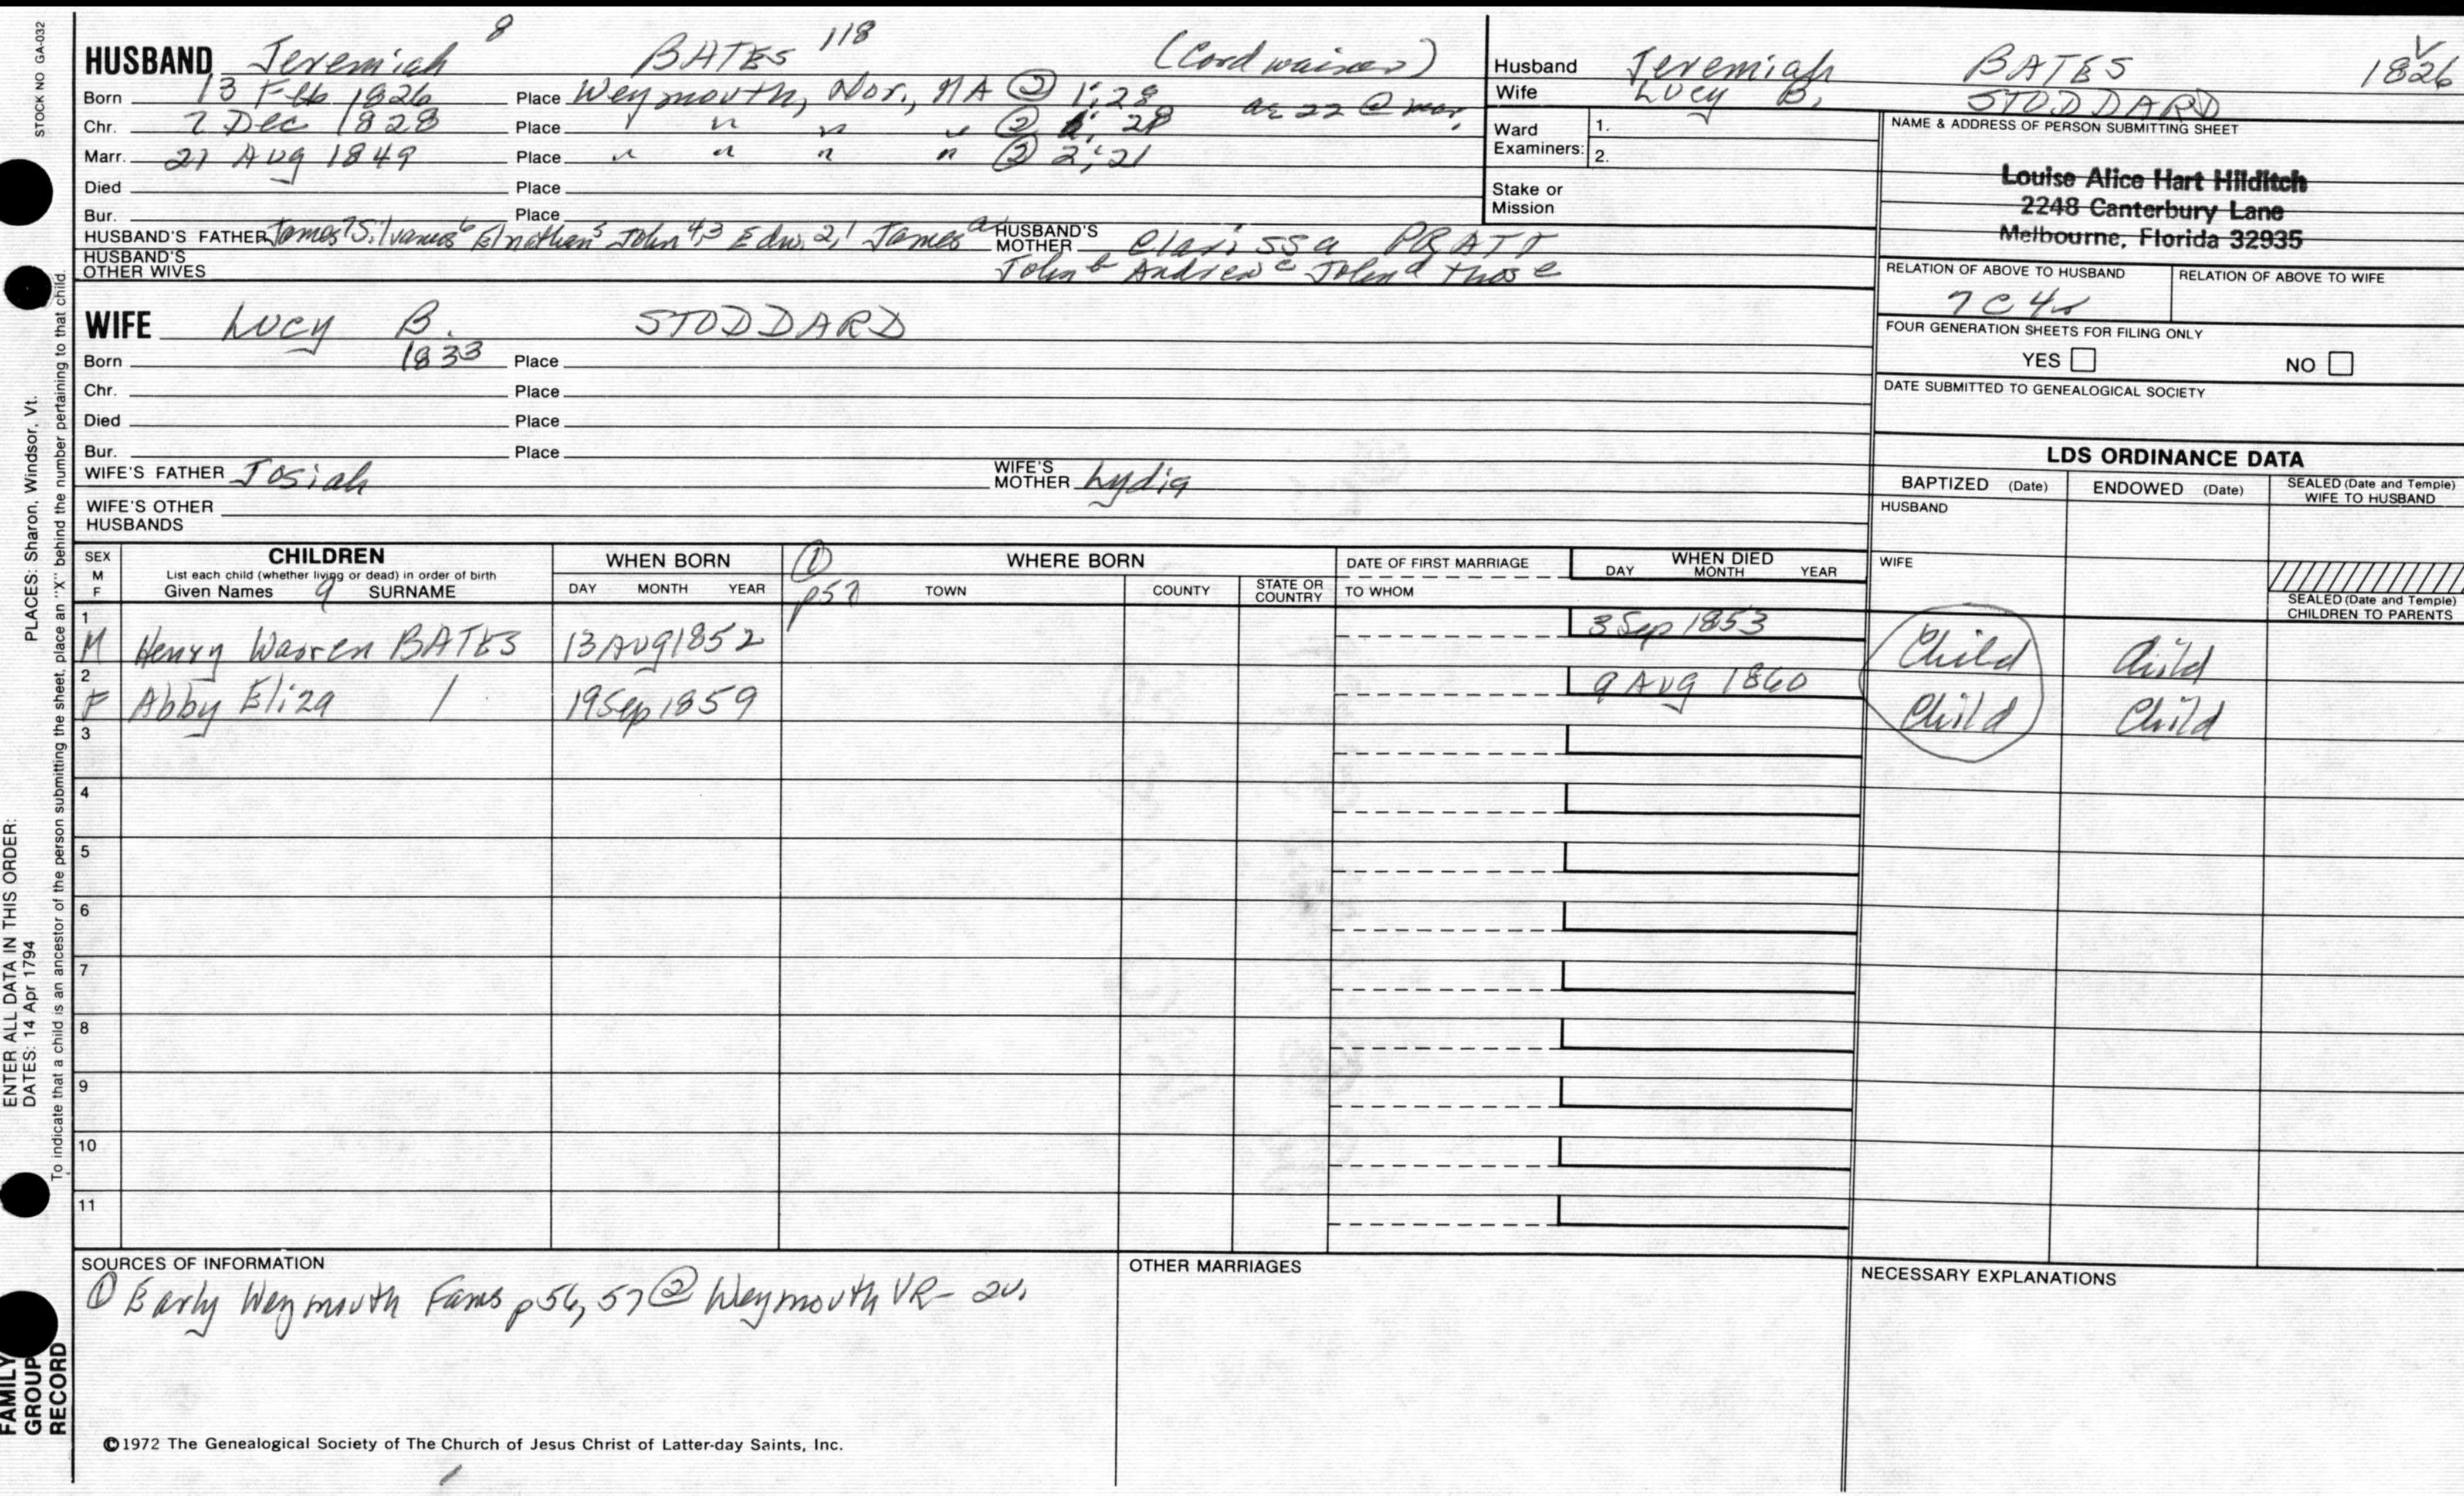 STOCK NO GA-032
HUSBAND Jeremiah 8 BATES 118 (Cordwainer)
Born 13 Feb 1826 Place Weymouth, Nor., MA ② 1; 28 ae 22 @ mar.
Chr. 7 Dec 1828 Place " " " " ② 1; 28
Marr. 27 Aug 1849 Place " " " " ② 2; 21
Died Place
Bur. Place
HUSBAND'S FATHER James 7 Silvanus 6 Elnathan 5 John 4,3 Edw. 2,1 James a HUSBAND'S MOTHER Clarissa PRATT
HUSBAND'S OTHER WIVES John b Andrew c John d Thos e
WIFE Lucy B. STODDARD
Born 1833 Place
Chr. Place
Died Place
Bur. Place
WIFE'S FATHER Josiah WIFE'S MOTHER Lydia
WIFE'S OTHER HUSBANDS
Husband Jeremiah BATES 1826
Wife Lucy B. STODDARD
Ward Examiners: 1.
2.
Stake or Mission
NAME & ADDRESS OF PERSON SUBMITTING SHEET
Louise Alice Hart Hilditch
2248 Canterbury Lane
Melbourne, Florida 32935
RELATION OF ABOVE TO HUSBAND RELATION OF ABOVE TO WIFE
7C4r
FOUR GENERATION SHEETS FOR FILING ONLY
YES NO
DATE SUBMITTED TO GENEALOGICAL SOCIETY
LDS ORDINANCE DATA
BAPTIZED (Date) ENDOWED (Date) SEALED (Date and Temple) WIFE TO HUSBAND
HUSBAND
WIFE
SEALED (Date and Temple) CHILDREN TO PARENTS
SEX M F
CHILDREN
List each child (whether living or dead) in order of birth
Given Names 9 SURNAME
WHEN BORN
DAY MONTH YEAR
① p57
WHERE BORN
TOWN COUNTY STATE OR COUNTRY
DATE OF FIRST MARRIAGE
TO WHOM
WHEN DIED
DAY MONTH YEAR
1 M Henry Warren BATES 13 Aug 1852 3 Sep 1853 Child Child
2 F Abby Eliza / 19 Sep 1859 9 Aug 1860 Child Child
3
4
5
6
7
8
9
10
11
SOURCES OF INFORMATION
① Early Weymouth Fams p56, 57 ② Weymouth VR- 2v.
OTHER MARRIAGES
NECESSARY EXPLANATIONS
©1972 The Genealogical Society of The Church of Jesus Christ of Latter-day Saints, Inc.
ENTER ALL DATA IN THIS ORDER:
DATES: 14 Apr 1794
PLACES: Sharon, Windsor, Vt.
To indicate that a child is an ancestor of the person submitting the sheet, place an "X" behind the number pertaining to that child.
FAMILY GROUP RECORD